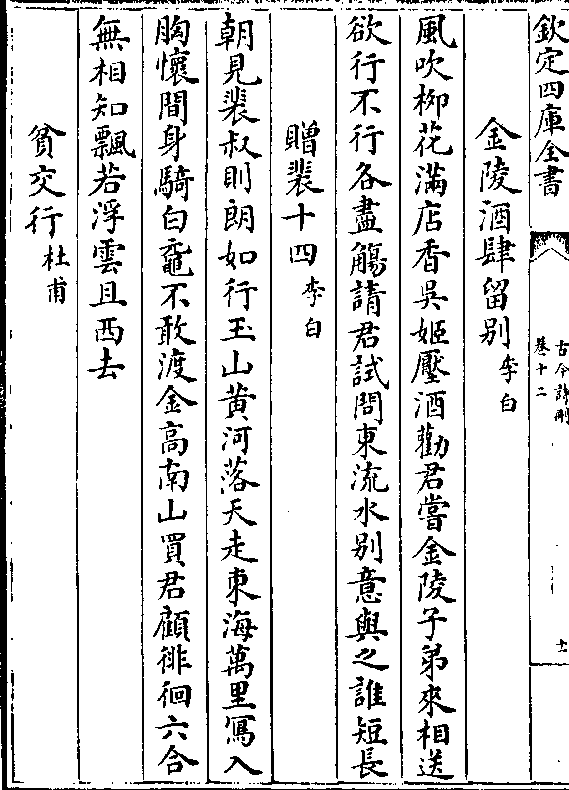 欽定四庫全書
古今詩刪
卷十二
十一
金陵酒肆留别 李白
風吹柳花滿店香吳姬壓酒勸君嘗金陵子弟來相送
欲行不行各盡觴請君試問東流水别意與之誰短長
贈裴十四 李白
朝見裴叔則朗如行玉山黄河落天走東海萬里寫入
胸懷間身騎白黿不敢渡金高南山買君顧徘徊六合
無相知飄若浮雲且西去
貧交行 杜甫